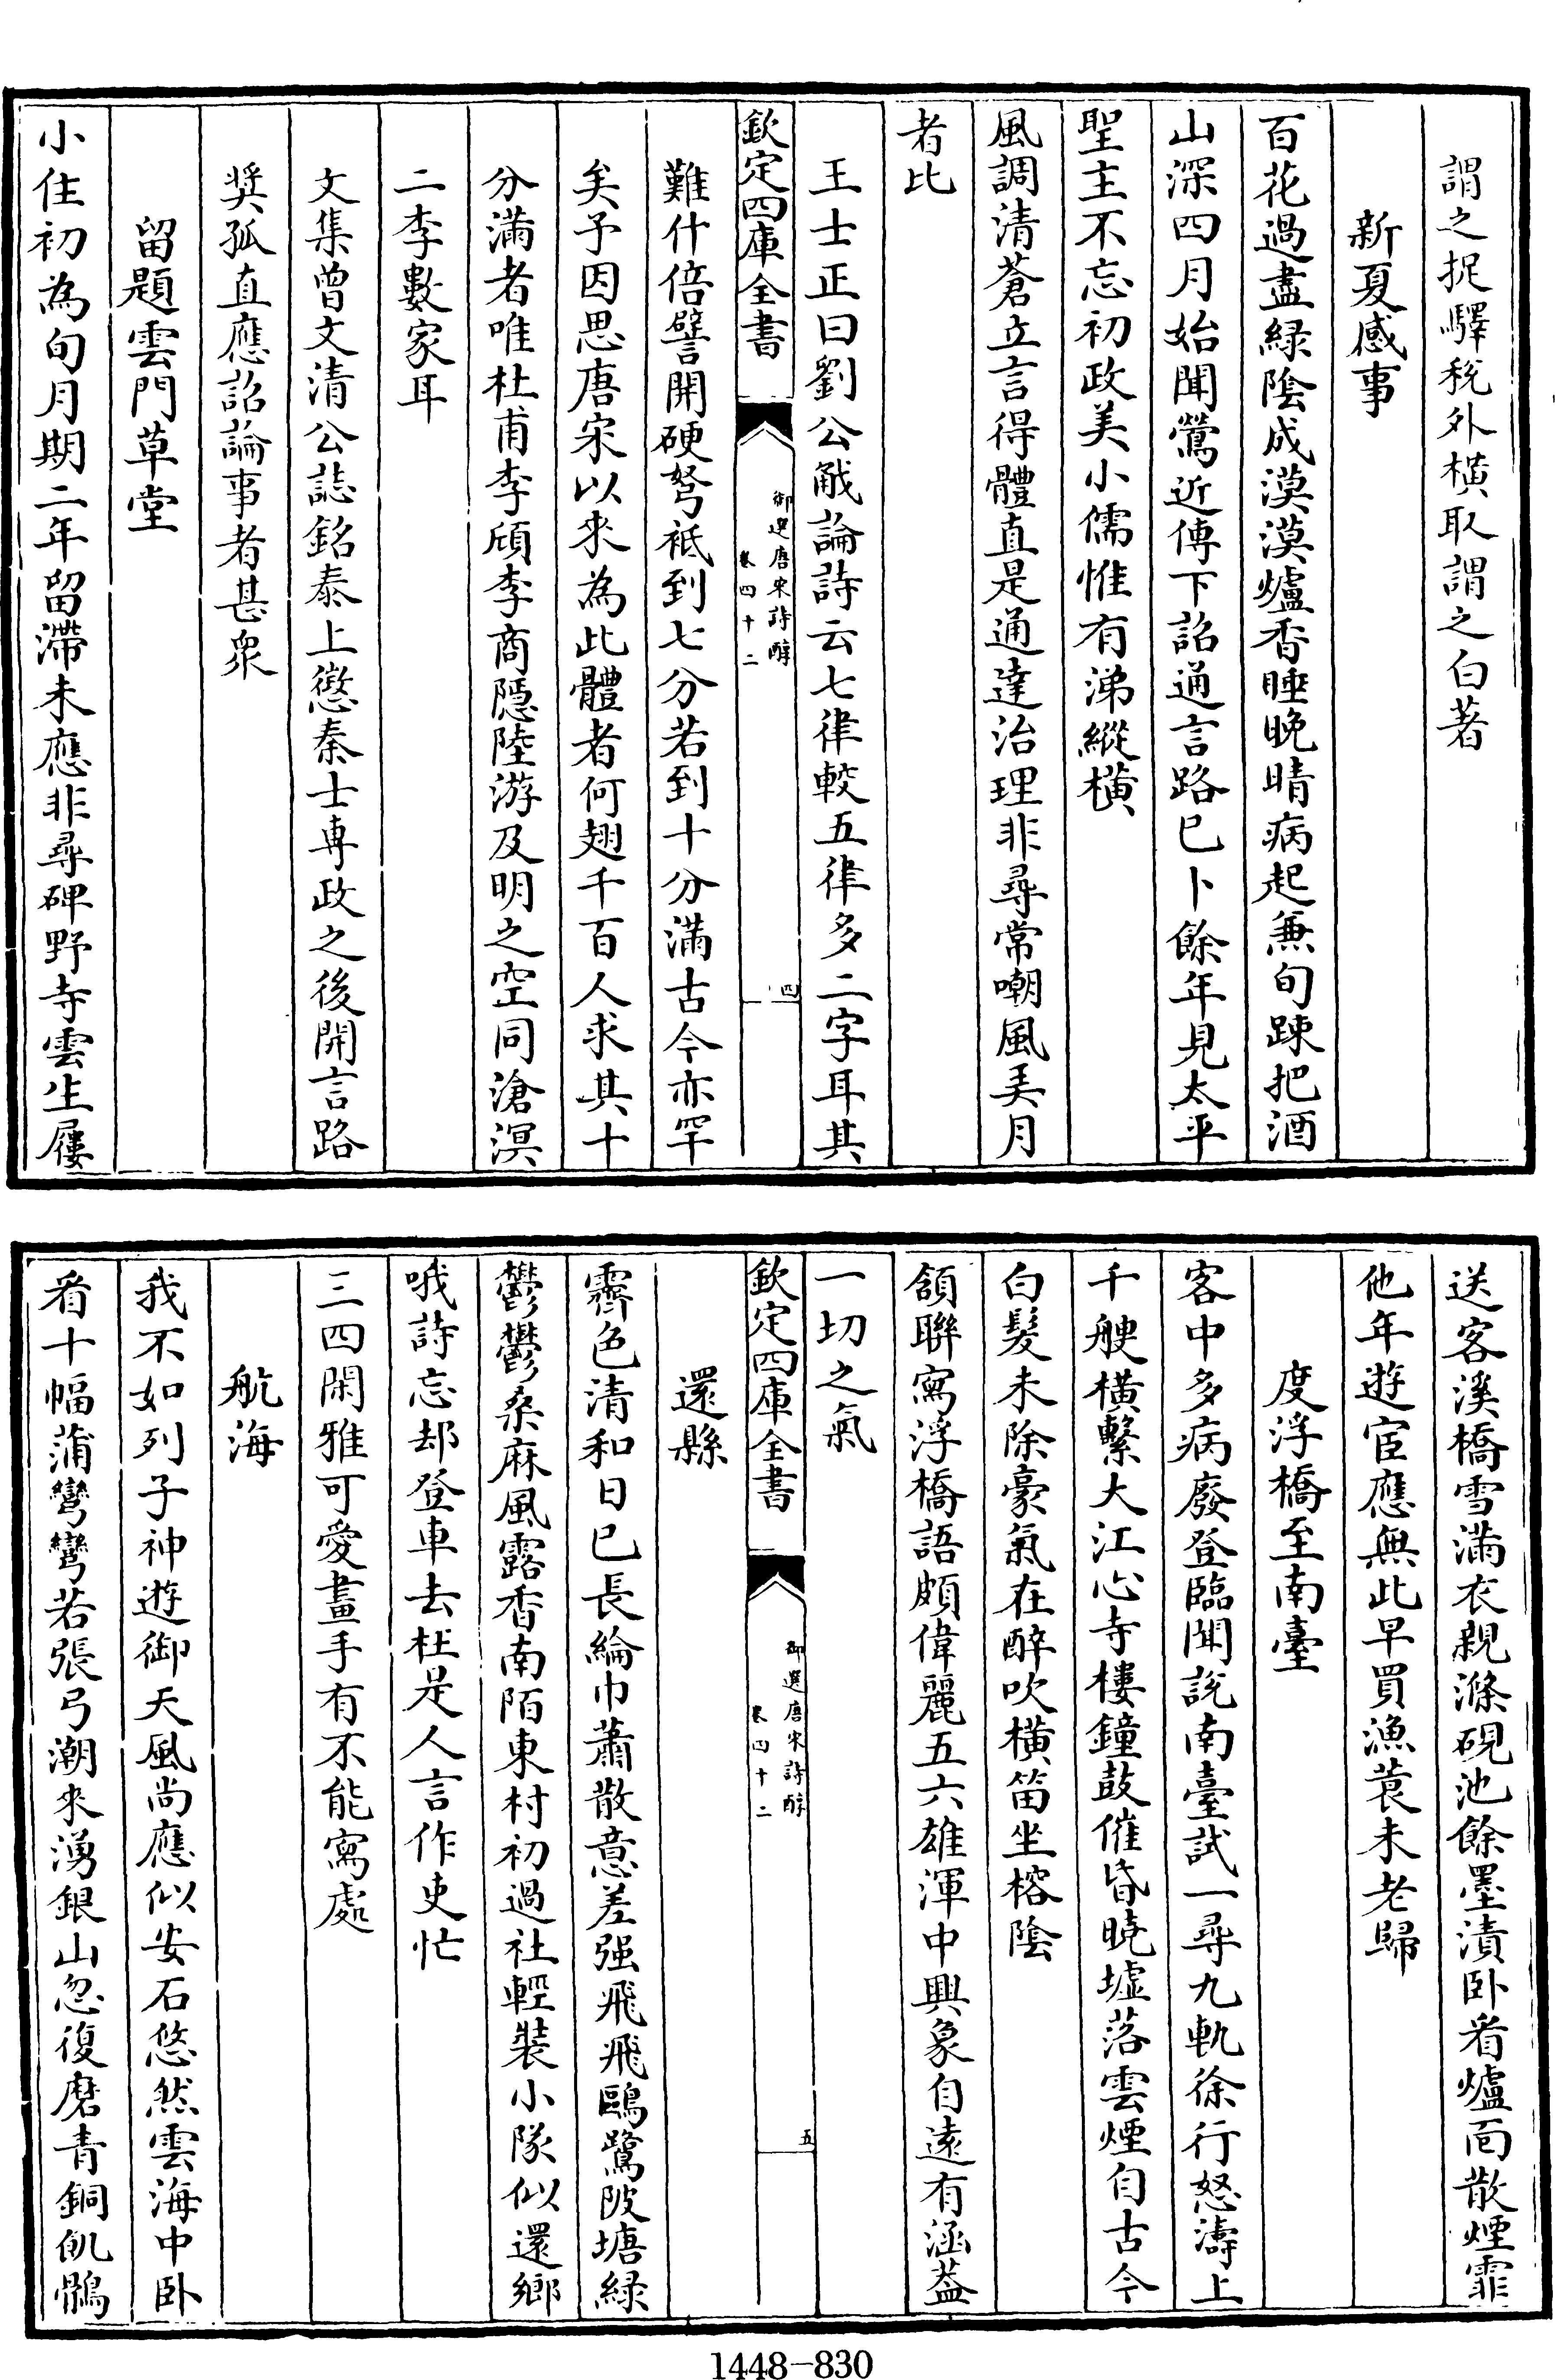 謂之捉驛稅外橫取謂之白著
新夏感事
百花過盡綠陰成漠漠爐香睡晚晴病起兼旬踈把酒
山深四月始聞鶯近傳下詔通言路已卜餘年見太平
聖主不忘初政美小儒惟有涕縱橫
風調清蒼立言得體直是通達治理非尋常嘲風美月
者比
王士正曰劉公㦷論詩云七律較五律多二字耳其
欽定四庫全書
御選唐宋詩醇
卷四十二
四
難什倍譬開硬弩袛到七分若到十分滿古今亦罕
矣予因思唐宋以來為此體者何翅千百人求其十
分滿者唯杜甫李頎李商隱陸游及明之空同滄溟
二李數家耳
文集曾文清公誌銘泰上懲秦士專政之後開言路
奬孤直應詔論事者甚衆
留題雲門草堂
小住初為旬月期二年留滯未應非尋碑野寺雲生屨
送客溪橋雪滿衣親滌硯池餘墨漬卧看爐面散煙霏
他年遊宦應無此早買漁蓑未老歸
度浮橋至南臺
客中多病廢登臨聞說南臺試一尋九軌徐行怒濤上
千艘橫繫大江心寺樓鐘鼓催昏曉墟落雲煙自古今
白髮未除豪氣在醉吹橫笛坐榕陰
頷聯寫浮橋語頗偉麗五六雄渾中興象自遠有涵蓋
一切之氣
欽定四庫全書
御選唐宋詩醇
卷四十二
五
還縣
霽色清和日已長綸巾蕭散意差强飛飛鷗鷺陂塘綠
鬱鬱桑麻風露香南陌東村初過社輕裝小隊似還鄉
哦詩忘却登車去枉是人言作吏忙
三四閑雅可愛畫手有不能寫處
航海
我不如列子神遊御天風尚應似安石悠然雲海中卧
看十幅蒲彎彎若張弓潮來湧銀山忽復磨青銅飢鶻
1448-830